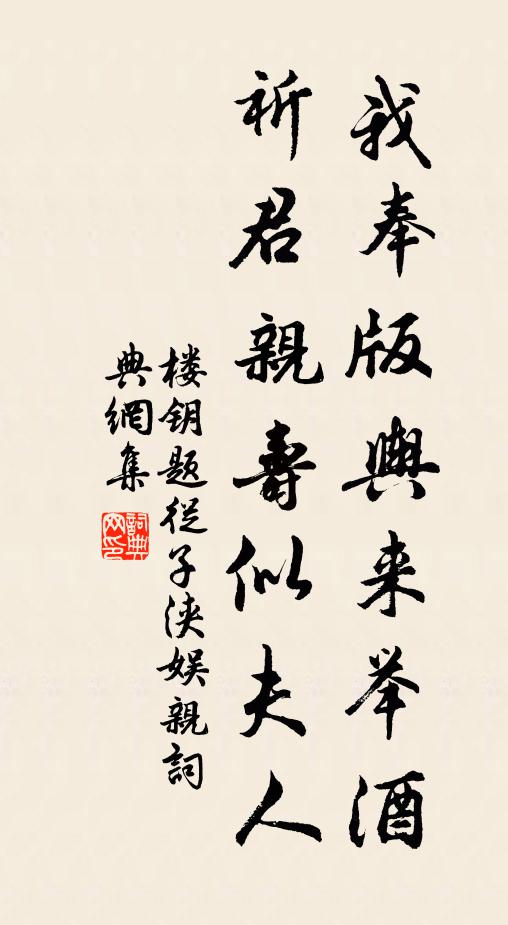 我奉版輿来举酒
祈君親壽似夫人
楼钥题從子浃娱親詞
典網集
詞典网印